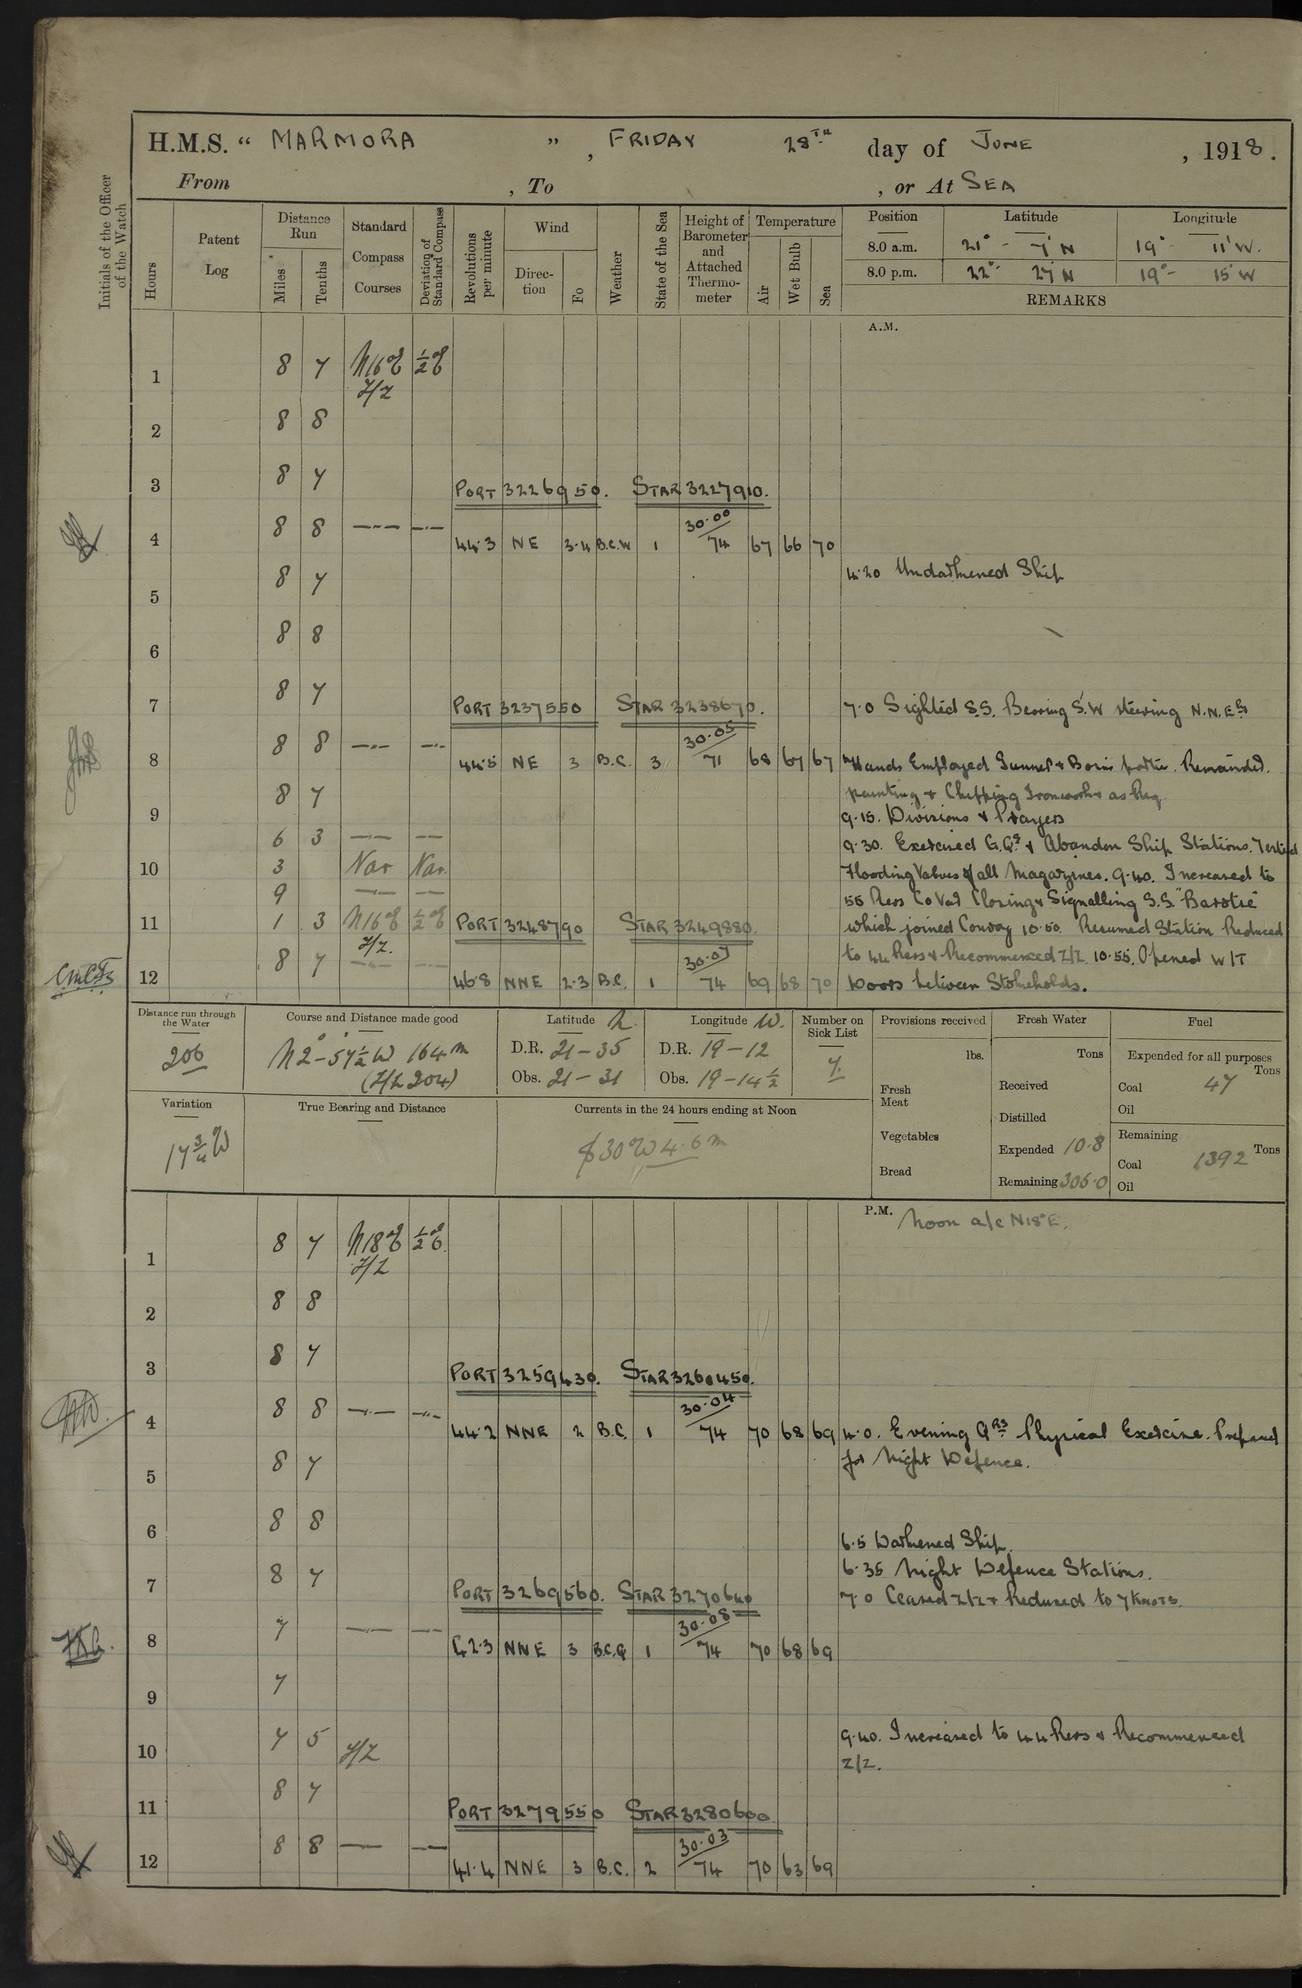 H.M.S. “ MARMORA ” , FRIDAY 28TH day of JUNE , 1918.
From , To , or At SEA
Initials of the Officer of the Watch
Hours
Patent Log
Distance Run
Miles
Tenths
Standard Compass Courses
Deviation of Standard Compass
Revolutions per minute
Wind
Direction
Fo
Weather
State of the Sea
Height of Barometer and Attached Thermometer
Temperature
Air
Wet Bulb
Sea
Position Latitude Longitude
8.0 a.m. 21° - 7' N 19° - 11' W.
8.0 p.m. 22° - 27' N 19° - 15' W
REMARKS
A.M.
1 8 7 N16°E ½°E
Z/Z
2 8 8
3 8 7
PORT 3226950. STAR 3227910.
30.00
4 8 8 —·— —·—
44.3 NE 3-4 B.C.W 1 74 67 66 70
4.20 Undarkened Ship
5 8 7
6 8 8
7 8 7
PORT 3237550 STAR 3238670. 7.0 Sighted S.S. Bearing S.W steering N.N.E
30.05
8 8 8 —·— —·—
44.5 NE 3 B.C. 3 71 68 67 67 Hands Employed Gunner & Bosn's parties. Remainder.
painting & Chipping Ironwork & as Req
9 8 7
9.15. Divisions & Prayers
6 3 —·— —·—
9.30. Exercised G.Qs & Abandon Ship Stations. Tested
10 3 Var Var.
Flooding Valves of all Magazines. 9.40. Increased to
9 —·— —
55 Revs Co Vad Closing & Signalling S.S. "Barotie"
11 1 3 N16°E ½°E PORT 3248790 STAR 3249880.
which joined Convoy 10.50. Resumed Station Reduced
Z/Z. 30.07
to 44 Revs & Recommenced Z/Z. 10.55. Opened W/T
12 8 7 —·— —·—
46.8 NNE 2-3 B.C. 1 74 69 68 70 Doors between Stokeholds.
Distance run through the Water
206
Course and Distance made good
N2° - 57½'W 164 m
(Z/Z 204)
Latitude N.
D.R. 21-35
Obs. 21-31
Longitude W.
D.R. 19-12
Obs. 19-14½
Number on Sick List
7.
Provisions received
lbs.
Fresh Meat
Vegetables
Bread
Fresh Water
Tons
Received
Distilled
Expended 10.8
Remaining 305.0
Fuel
Expended for all purposes
Tons
Coal 47
Oil
Remaining
Tons
Coal 1392
Oil
Variation
17¾ W
True Bearing and Distance
Currents in the 24 hours ending at Noon
S30°W 4.6 m
P.M. Noon a/c N18°E.
1 8 7 N18°E ½°E.
Z/Z
2 8 8
3 8 7
PORT 3259430. STAR 3260450.
30.04
4 8 8 —·— —·—
44.2 NNE 2 B.C. 1 74 70 68 69 4.0. Evening QRS Physical Exercise. Prepared
for Night Defence.
5 8 7
6 8 8
6.5 Darkened Ship.
6.35 Night Defence Stations.
7 8 7
PORT 3269560. STAR 3270640 7.0 Ceased Z/Z & Reduced to 7 KNOTS.
30.08
8 7 —·— —·—
42.3 NNE 3 B.C.Q 1 74 70 68 69
9 7
10 7 5 Z/Z
9.40. Increased to 44 Revs & Recommenced
Z/Z.
11 8 7
PORT 3279550 STAR 3280600.
30.03
12 8 8 — —·—
41.4 NNE 3 B.C. 2 74 70 63 69